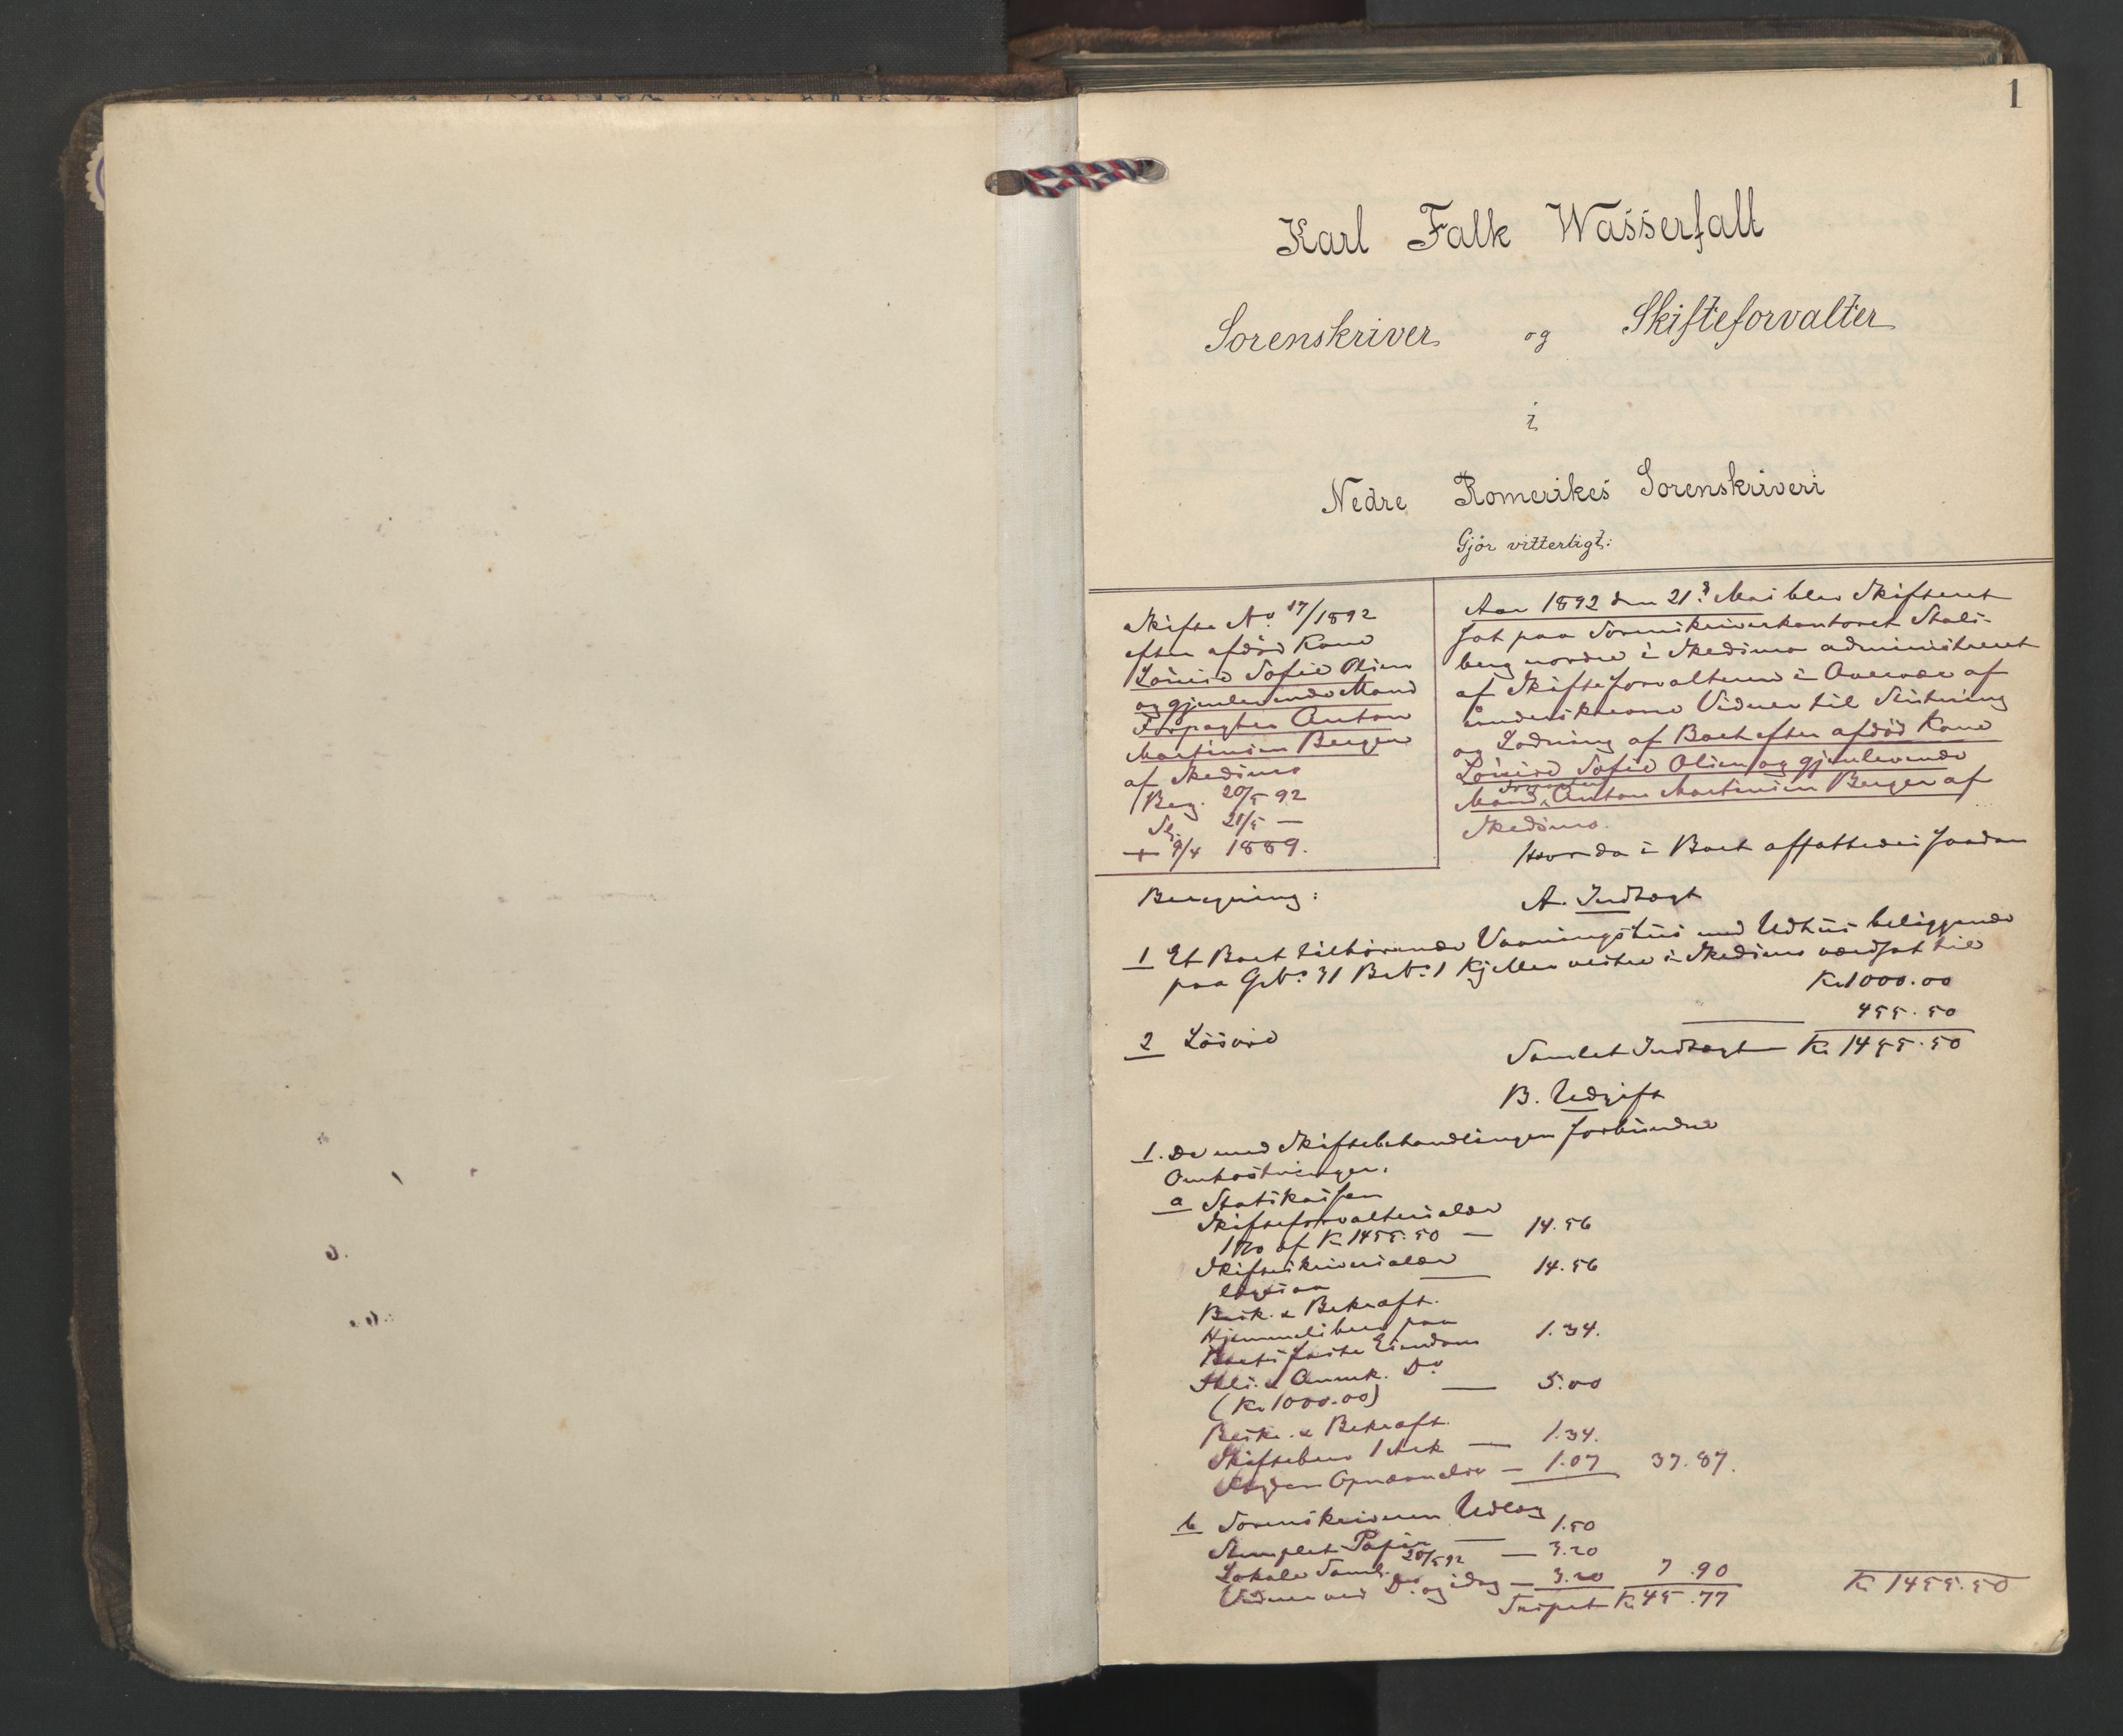 1
Karl Falk Wasserfall
Sorenskriver og Skifteforvalter
i
Nedre Romerikes Sorenskriveri
Gjör vitterligt:
Skifte No 17/1892
efter afdöd Kone
Lovise Sofie Olsen
og gjenlevende Mand
Forpagter Anton
Martinsen Berger
af Skedsmo
Beg. 20/5 92
Sl. 21/5 —
+ 9/4 1889.
Aar 1892 den 21de Mai blev Skifteret
sat paa Sorenskriverkontoret Stals-
berg nordre i Skedsmo administreret
af Skifteforvalteren i Overvær af
underskrevne Vidner til Slutning
og Lodning af Boet efter afdöd Kone
Lovise Sofie Olsen og gjenlevende
Forpagter
Mand, Anton Martinsen Berger af
Skedsmo.
Hvorda i Boet affattedes saadan
Beregning:
A. Indtægt
1 Et Boet tilhörende Vaaningshus med Udhus beliggende
paa Gr No 31 Br No 1 Kjeller vestre i Skedsmo værdsat til
Kr 1000.00
2 Lösöre — 455.50
Samlet Indtægt Kr 1455.50
B. Udgift
1. De med Skiftebehandlingen forbundne
Omkostninger.
a Statskassen
Skifteforvaltersalær
1% af Kr 1455.50 — 14.56
Skifteskriversalær
ligesaa — 14.56
Besk. & Bekræft.
Hjemmelsbrev paa
Boets faste Eiendom 1.34.
Thl. & Anmk. Do
(Kr 1000.00) — 5.00
Beskr. & Bekræft.
Skiftebrev 1 Ark — 1.34.
— 1.07 37.87.
b Sorenskriveren Udlæg
Stemplet Papir — 1.50
Lokale Saml. 20/5 92 — 3.20
Vidner ved Do og idag — 3.20 7.90
Kr 45.77 Kr 1455.50